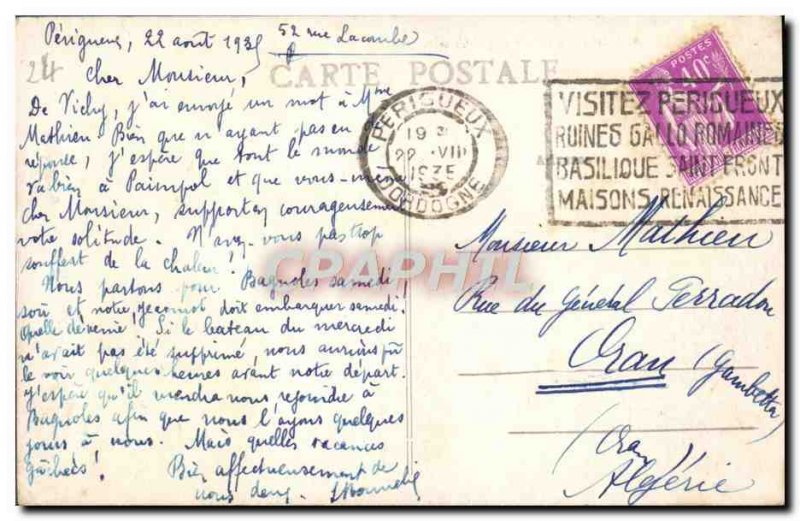 Périgueux, 22 août 1935 52 rue Lacombe
24
CARTE POSTALE
Cher Monsieur,
De Vichy, j'ai envoyé un mot à Mme
Mathieu. Bien que n'ayant pas eu
réponse, j'espère que tout le monde
va bien à Paimpol et que vous-même
cher Monsieur, supportez courageusement
votre solitude. N'avez-vous pas trop
souffert de la chaleur?
Nous partons pour Bagnoles samedi
soir et notre doit embarquer samedi.
Quelle déveine! Si le bateau du mercredi
n'avait pas été supprimé, nous aurions pu
le voir quelques heures avant notre départ.
J'espère qu'il viendra nous rejoindre à
Bagnoles afin que nous l'ayons quelques
jours à nous. Mais quelles vacances
gâchées!
Bien affectueusement de
nous deux.
PERIGUEUX
19
22 VIII
1935
DORDOGNE
POSTES
40c
VISITEZ PERIGUEUX
RUINES GALLO ROMAINES
BASILIQUE SAINT FRONT
MAISONS RENAISSANCE
CPRAPHIL
Monsieur Mathieu
Rue du Général Ferradou
Oran (Gambetta)
(Oran)
Algérie